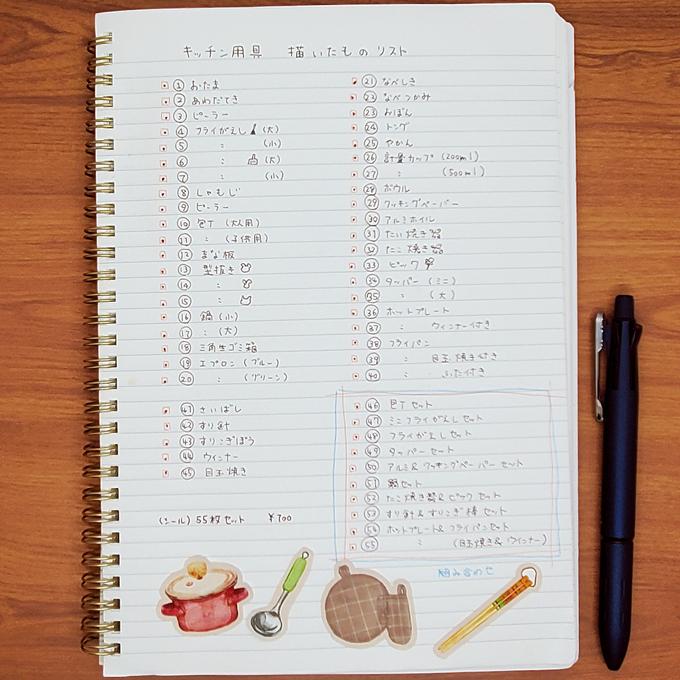 キッチン用具 描いたものリスト
① おたま
② あわだてき
③ ピーラー
④ フライがえし (大)
⑤ 〃 (小)
⑥ 〃 (大)
⑦ 〃 (小)
⑧ しゃもじ
⑨ ピーラー
⑩ 包丁 (大人用)
⑪ 〃 (子供用)
⑫ まな板
⑬ 型抜き
⑭ 〃
⑮ 〃
⑯ 鍋 (小)
⑰ 〃 (大)
⑱ 三角生ゴミ箱
⑲ エプロン (ブルー)
⑳ 〃 (グリーン)
㉑ なべしき
㉒ なべつかみ
㉓ おぼん
㉔ トング
㉕ やかん
㉖ 計量カップ (200ml)
㉗ 〃 (500ml)
㉘ ボウル
㉙ クッキングペーパー
㉚ アルミホイル
㉛ たい焼き器
㉜ たこ焼き器
㉝ ピック
㉞ タッパー (ミニ)
㉟ 〃 (大)
㊱ ホットプレート
㊲ 〃 ウィンナー付き
㊳ フライパン
㊴ 〃 目玉焼き付き
㊵ 〃 ふた付き
㊶ さいばし
㊷ すり鉢
㊸ すりこぎぼう
㊹ ウィンナー
㊺ 目玉焼き
㊻ 包丁セット
㊼ ミニフライがえしセット
㊽ フライがえしセット
㊾ タッパーセット
㊿ アルミ&クッキングペーパーセット
51 鍋セット
52 たこ焼き器&ピックセット
53 すり鉢&すりこぎ棒セット
54 ホットプレート&フライパンセット
55 〃 (目玉焼き&ウインナー)
(シール) 55枚セット ¥700
組み合わせ